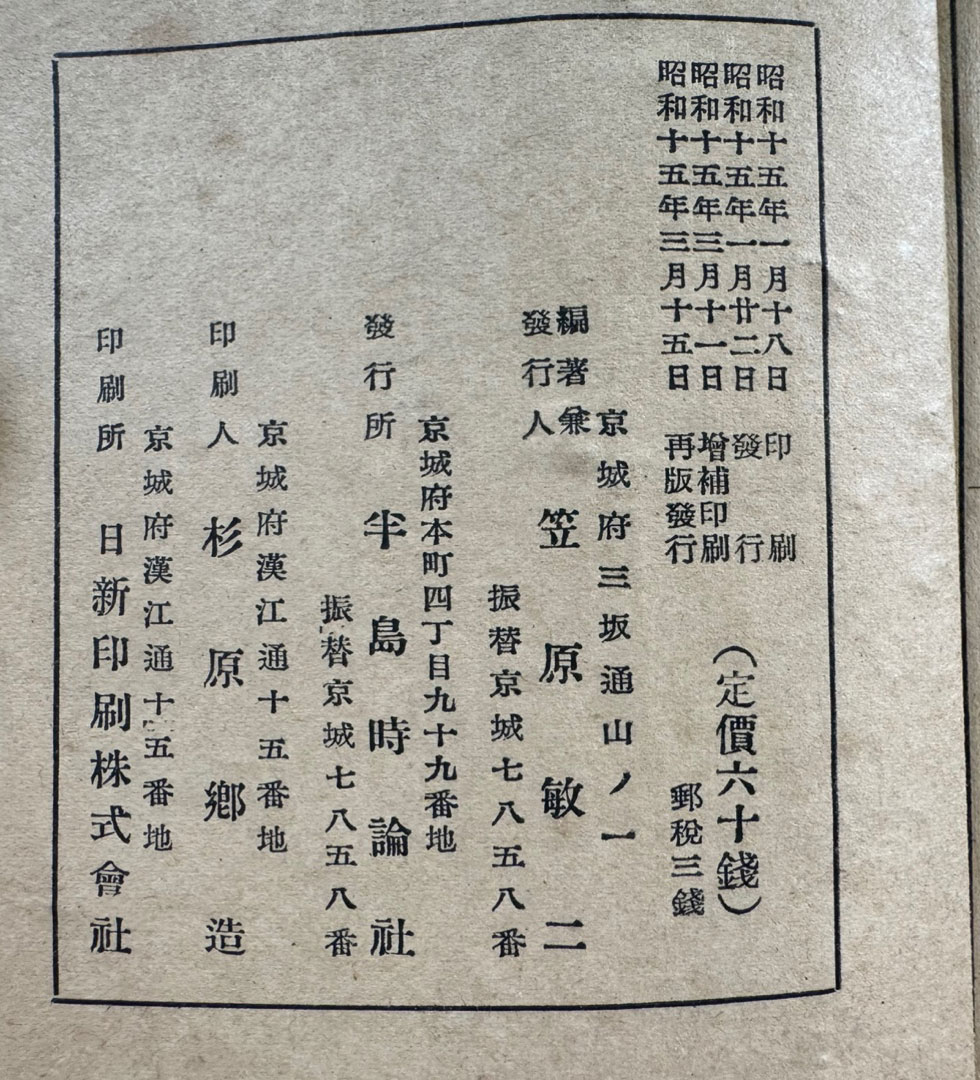 昭和十五年一月十八日 印刷
昭和十五年一月廿二日 發行
昭和十五年三月十一日 增補印刷
昭和十五年三月十五日 再版發行
(定價六十錢)
郵稅三錢
京城府三坂通山ノ一
編著兼
發行人 笠原敏二
振替京城七八五八番
京城府本町四丁目九十九番地
發行所 半島時論社
振替京城七八五八番
京城府漢江通十五番地
印刷人 杉原鄉造
京城府漢江通十五番地
印刷所 日新印刷株式會社